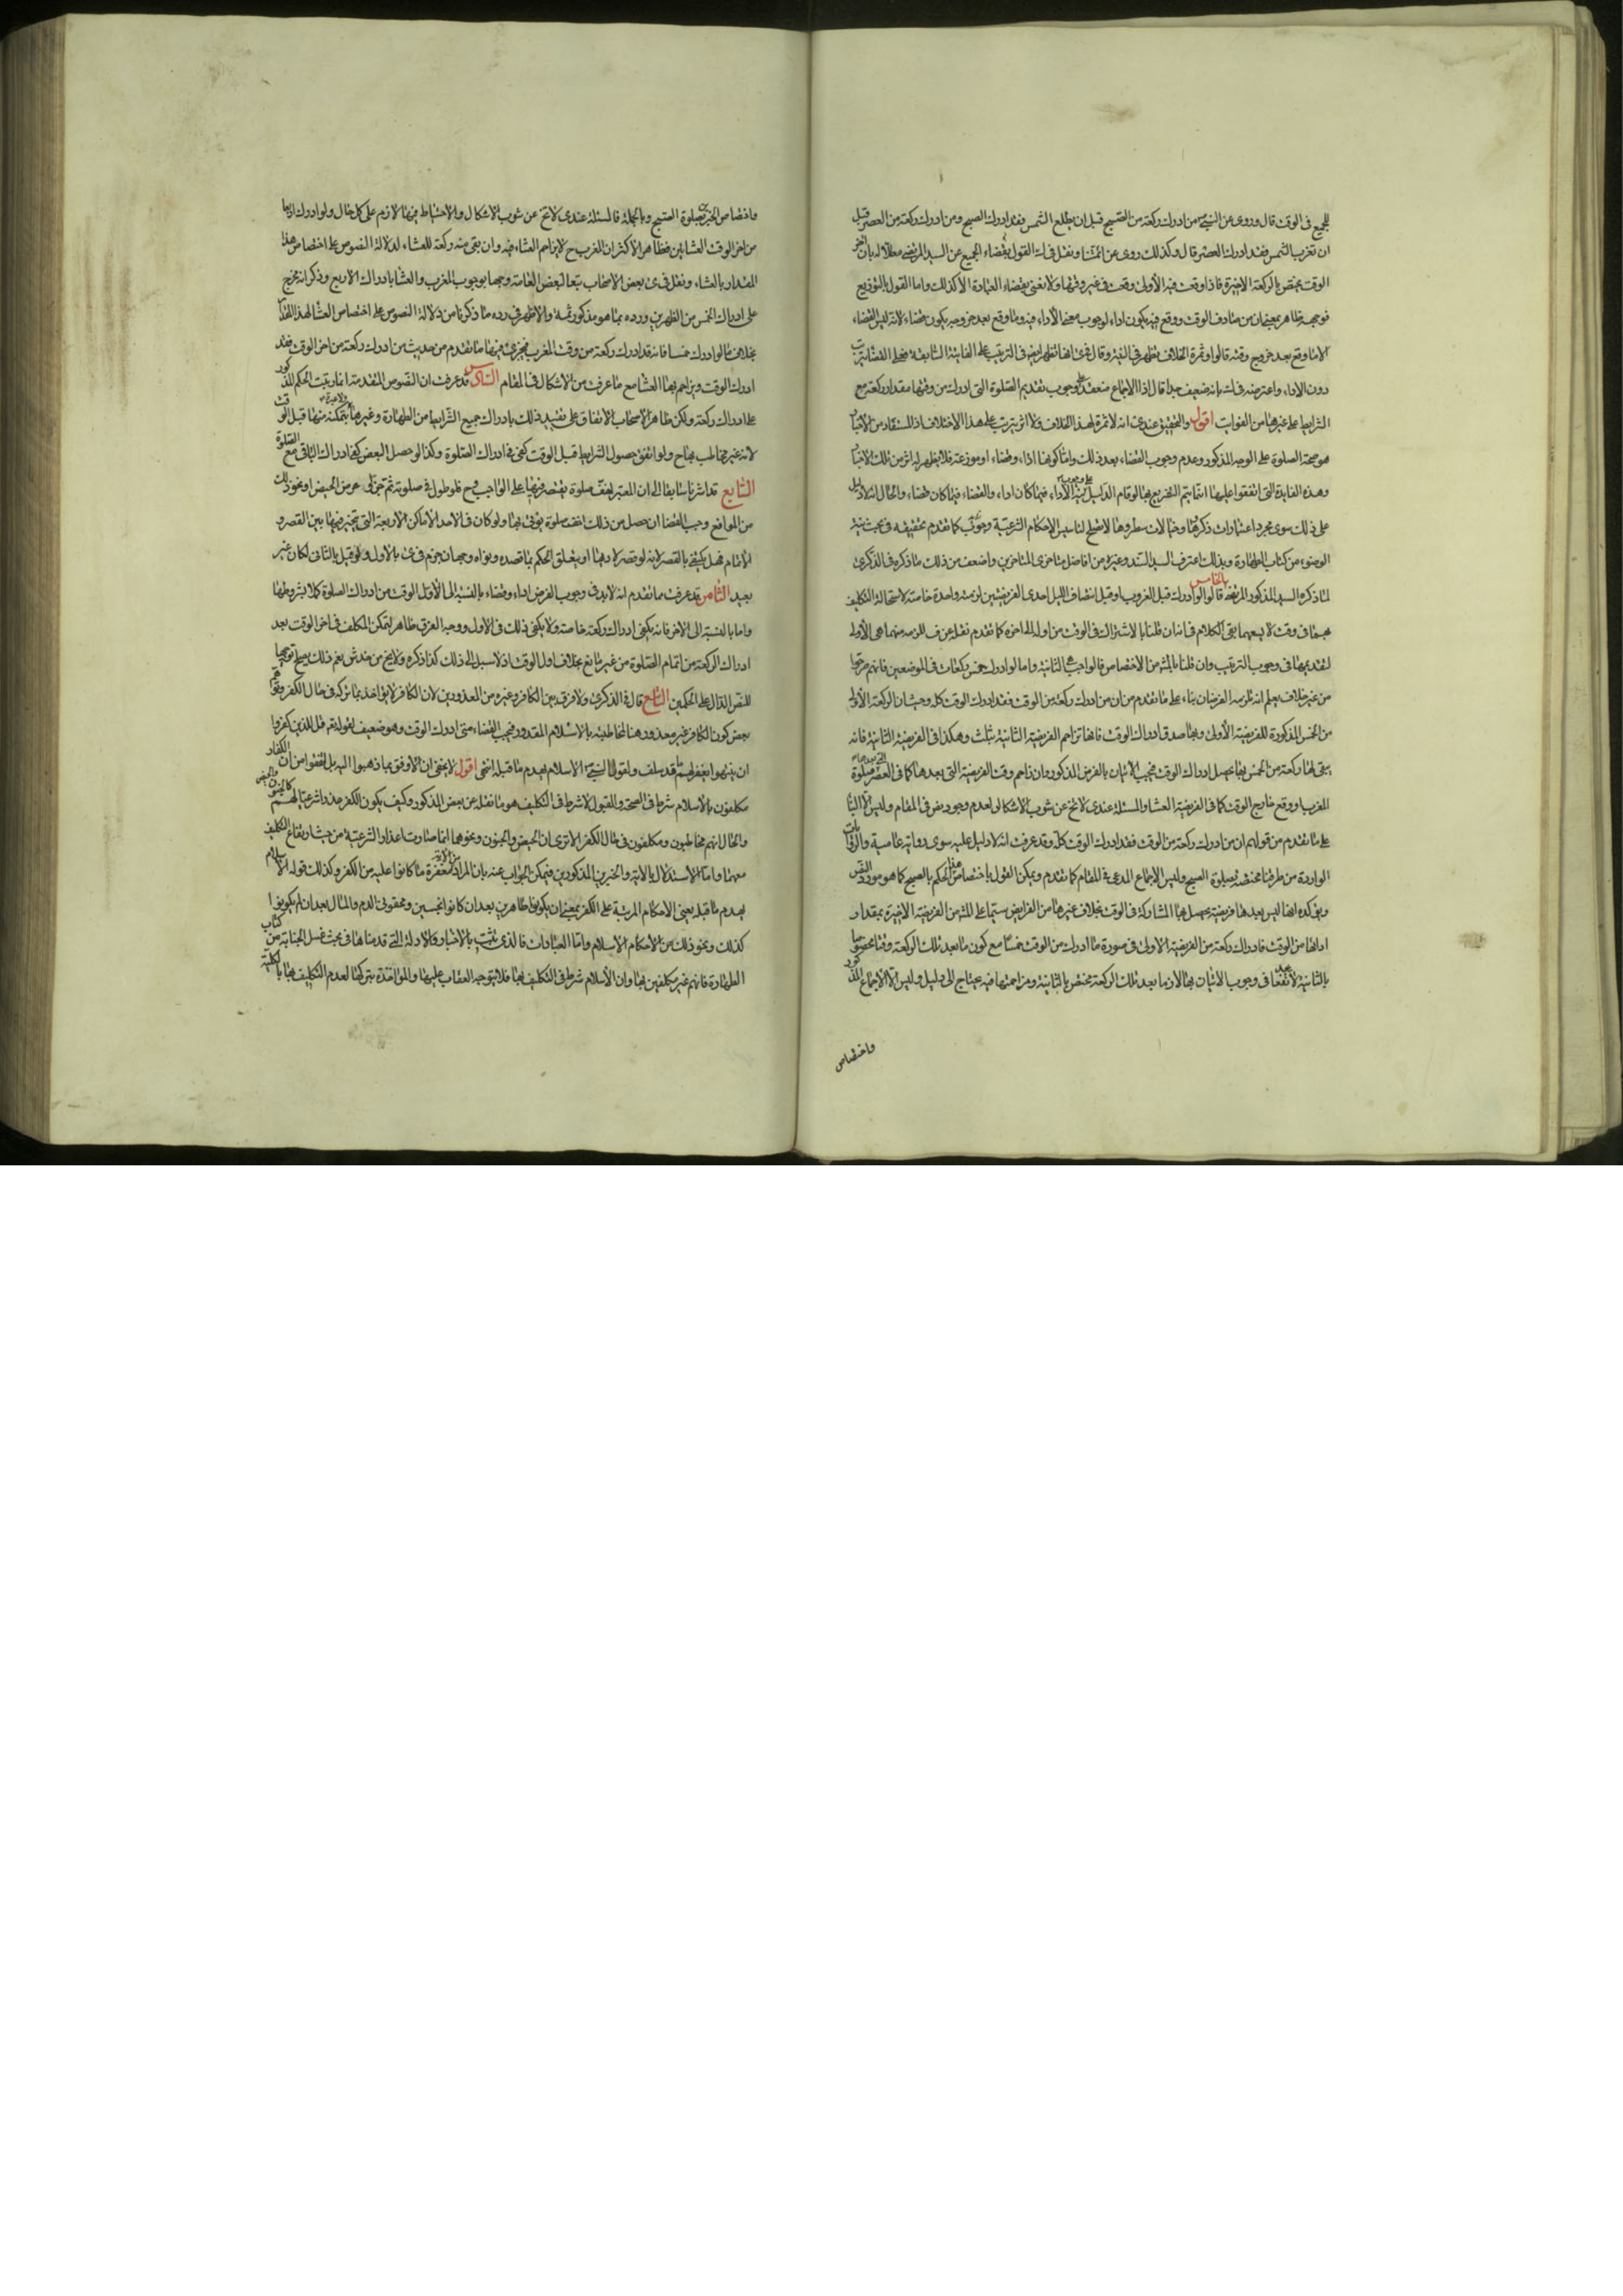 للجميع فى الوقت قال وروى عن النبى ص من ادرك ركعة من الصبح قبل ان يطلع الشمس فقد ادرك الصبح ومن ادرك ركعة من العصر قبل
ان تغرب الشمس فقد ادرك العصر قال وكذلك روى عن ائمتنا ونقل فى القول بقضاء الجميع عن السيد المرتضى معللا له بان اخر
الوقت يختص بالركعة الاخيرة فاذا وقعت فيه الأولى وقعت فى غير وقتها ولا نعنى بقضاء العبادة الا كذلك واما القول بالتوزيع
فوجهه ظاهر بمعنى ان من صادف الوقت ووقع فيه يكون اداء لوجوب معنى الأداء فيه وما وقع بعد خروجه يكون قضاء لانه ليس القضاء
الا ما وقع بعد خروج وقته قالوا وثمرة الخلاف تظهر فى النية وقال فى انها تظهر ايضا فى الترتيب على الفايتة السابقة فعلى القضاء يترتب
دون الاداء واعترضه فى بانه ضعيف جدا قال اذ الاجماع منعقد على وجوب تقديم الصلوة التى ادرك من وقتها مقدار ركعة مع
الشرايط على غيرها من الفوايت اقول والتحقيق عندى انه لا ثمرة لهذا الخلاف ولا اثر يترتب على هذا الاختلاف اذ المستفاد من الاخبار
هو صحة الصلوة على الوجه المذكور وعدم وجوب القضاء بعد ذلك واما كونها اداء وقضاء او موزعة فلا يظهر له اثر من تلك الاخبار
وهذه الفايدة التى اتفقوا عليها انما يتم التفريع بها لو قام الدليل على وجوب نية الأداء فيما كان اداء والقضاء فيما كان قضاء والحال انه لا دليل
على ذلك سوى مجرد اعتبارات ذكروها وخيالات سطروها لا تصلح لتاسيس الاحكام الشرعية وجوبا كما تقدم تحقيقه فى بحث نية
الوضوء من كتاب الطهارة وبذلك اعترف السيد السند وغيره من افاضل متاخرى المتاخرين واضعف من ذلك ما ذكره فى الذكرى
لما ذكره السيد المذكور المرتضى الخامس قالوا لو ادرك قبل الغروب او قبل انتصاف الليل احدى الفريضتين لزمته واحدة خاصة لاستحالة التكليف
بهما فى وقت لا يسعهما بقى الكلام فى انه ان قلنا بالاشتراك فى الوقت من اوله الى اخره كما تقدم نقله عن ف للزمه منهما هى الأولى
لتقديمها فى وجوب الترتيب وان قلنا بالمشهور من الاختصاص فالواجب هى الثانية واما لو ادرك خمس ركعات فى الموضعين فانهم صرحوا
من غير خلاف يعلم انه تلزمه الفريضتان بناء على ما تقدم من ان من ادرك ركعة من الوقت فقد ادرك الوقت كله وحيث ان الركعة الأولى
من الخمس المذكورة للفريضة الأولى وبها صدق ادراك الوقت فانها تزاحم الفريضة الثانية بثلث وهكذا فى الفريضة الثانية فانه
يبقى لها ركعة من الخمس بها يحصل ادراك الوقت فيجب الاتيان بالفرض المذكور وان زاحم وقت الفريضة التى بعدها كما فى العصر وصلوة
المغرب او وقع خارج الوقت كما فى الفريضة العشاء والمسئلة عندى لا تخ عن شوب الاشكال لعدم وجود نص فى المقام وليس الا البناء
على ما تقدم من قولهم ان من ادرك ركعة من الوقت فقد ادرك الوقت كله وقد عرفت انه لا دليل عليه سوى رواية عامية والروايات
الواردة من طرقنا مختصة بصلوة الصبح وليس الا الاجماع المدعى فى المقام كما تقدم ويمكن القول باختصاص هذا الحكم بالصبح كما هو مورد النص
ويؤكده ايضا ليس بعدها فريضة يحصل بها المشاركة فى الوقت بخلاف غيرها من الفرايض سيما على المشهور من الفريضة الاخيرة بمقدار
ادائها من الوقت فادراك ركعة من الفريضة الاولى فى صورة ما ادرك من الوقت خمسا مع كون ما بعد تلك الركعة وقتا مخصوصا
بالثانية لا تنفع فى وجوب الاتيان بها لان ما بعد تلك الركعة مختص بالثانية ومزاحمتها فيه يحتاج الى دليل وليس الا الاجماع المذكور
واختصاص
واختصاص الخبرين بصلوة الصبح وبالجملة فالمسئلة عندى لا تخ عن شوب الاشكال والاحتياط فيها لازم على كل حال ولو ادرك اربعا
من اخر الوقت العشائين فظاهر الاكثر ان المغرب ح لا يزاحم العشاء فيه وان بقى منه ركعة للعشاء لدلالة النصوص على اختصاص هذا
المقدار بالعشاء ونقل فى عن بعض الاصحاب تبعا لبعض العامة وجها بوجوب المغرب والعشاء بادراك الاربع وذكر انه يخرج
على ادراك الخمس من الظهرين ورده بما هو مذكور ثمة والاظهر فى رده ما ذكرنا من دلالة النصوص على اختصاص العشاء لهذا المقدار
بخلاف ما لو ادرك خمسا فانه قد ادرك ركعة من وقت المغرب فيجرى فيها ما تقدم من حديث من ادرك ركعة من اخر الوقت فقد
ادرك الوقت ويزاحم بها العشاء مع ما عرفت من الاشكال فى المقام السادس قد عرفت ان النصوص المتقدمة انما رتبت الحكم المذكور
على ادراك ركعة ولكن ظاهر الاصحاب الاتفاق على تقييد ذلك بادراك جميع الشرايط من الطهارة وغيرها ولا عبرة بتمكنه منها قبل الوقت
لانه غير مخاطب بها ح ولو اتفق حصول الشرايط قبل الوقت كفى فى ادراك الصلوة وكذا لو حصل البعض كفى ادراك الباقى مع الصلوة
السابع قد اشرنا سابقا الى ان المعتبر اخف صلوة يقتصر فيها على الواجب فح فلو طول فى صلوته ثم جن او عرض الحيض او نحو ذلك
من الموانع وجب القضاء ان حصل من ذلك اخف صلوة يؤتى بها ولو كان فى الاحد الاماكن الاربعة التى يتخير فيها بين القصر و
الاتمام فهل يكتفى بالقصر لانه لو قصر لادهنا او يتعلق الحكم بما قصده ونواه وجهان جزم فى بالاول ولو قيل بالثانى لكان غير
بعيد الثامن قد عرفت مما تقدم انه لا بد فى وجوب الفرض اداء وقضاء بالنسبة الى الأول الوقت من ادراك الصلوة كملا بشروطها
واما بالنسبة الى الاخر فانه يكفى ادراك ركعة خاصة ولا يكفى ذلك فى الاول ووجه الفرق ظاهر لتمكن المكلف فى اخر الوقت بعد
ادراك الركعة من اتمام الصلوة من غير مانع بخلاف اول الوقت اذ لا سبيل الى ذلك كذا ذكره ولا يخ من خدش نعم ذلك يصلح توجيها
للنص الدال على الحكمين التاسع قال فى الذكرى ولا فرق بين الكافر وغيره من المعذورين لان الكافر لا يؤاخذ بما تركه فى حال الكفر وتوهم
بعض كون الكافر غير معذور هنا لمخاطبته بالاسلام المقدور فيجب القضاء متى ادرك الوقت وهو ضعيف لقوله تع قل للذين كفروا
ان ينتهوا يغفر لهم ما قد سلف ولقول النبى ص الاسلام يهدم ما قبله انتهى اقول لا يخفى ان الاوفق بما ذهبوا اليه بل اتفقوا من ان الكفار
مكلفون بالاسلام شرط فى الصحة والقبول لا شرط فى التكليف هو ما نقله عن بعض المذكور وكيف يكون الكفر عذرا شرعيا لهم كالجنون والحيض
والحال انهم مخاطبون ومكلفون فى حال الكفر الا ترى ان الحيض والجنون ونحوهما انما صارت اعذارا شرعية من حيث ارتفاع التكليف
معها واما الاستدلال بالاية والخبرين المذكورين فيمكن الجواب عنه بان المراد من الاية مغفرة ما كانوا عليه من الكفر وكذلك قوله الاسلام
يهدم ما قبله يعنى الاحكام المرتبة على الكفر بمعنى ان يكونوا طاهرين بعد ان كانوا نجسين ومحقونى الدم والمال بعد ان لم يكونوا
كذلك ونحو ذلك من الاحكام الاسلام واما العبادات فالذى ثبت بالاخبار والادلة التى قدمناها فى بحث غسل الجنابة من كتاب
الطهارة فانهم غير مكلفين بها وان الأسلام شرط فى التكليف بها فلا يتوجه العقاب عليها والمؤاخذة بتركها لعدم التكليف بها بالكلية